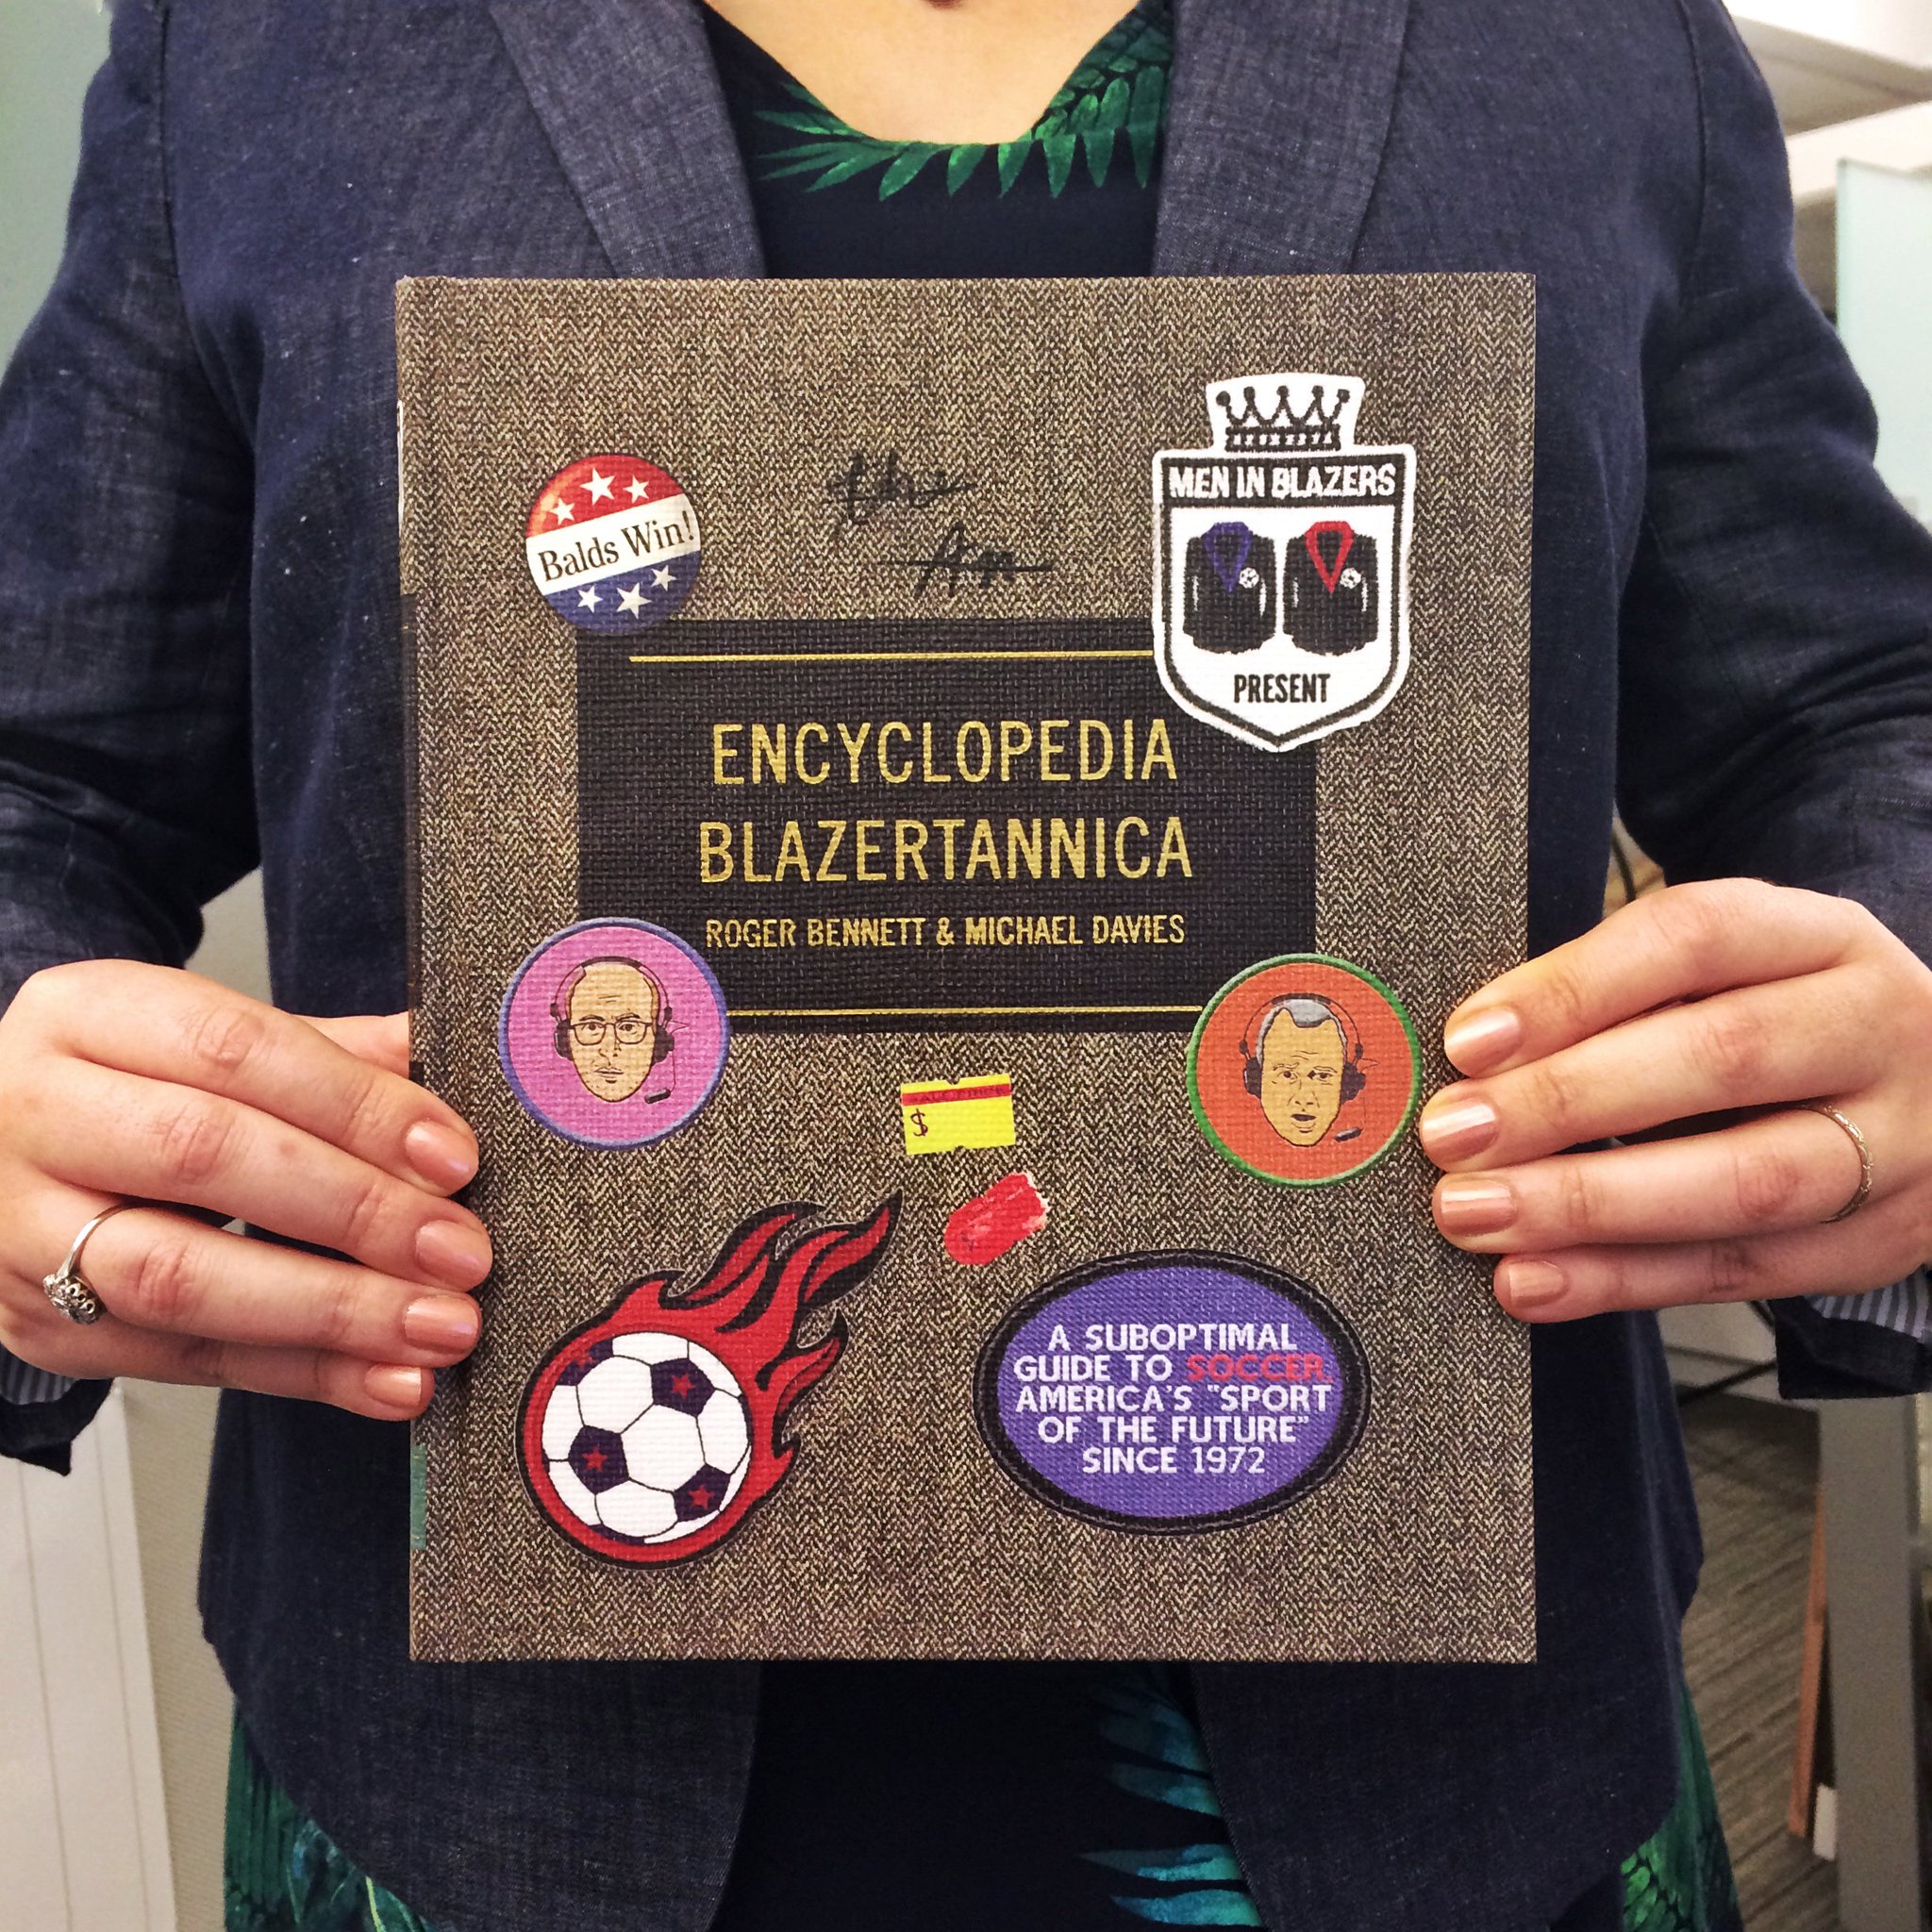 Balds Win!
MEN IN BLAZERS
PRESENT
ENCYCLOPEDIA
BLAZERTANNICA
ROGER BENNETT & MICHAEL DAVIES
$
A SUBOPTIMAL
GUIDE TO SOCCER,
AMERICA'S "SPORT
OF THE FUTURE"
SINCE 1972